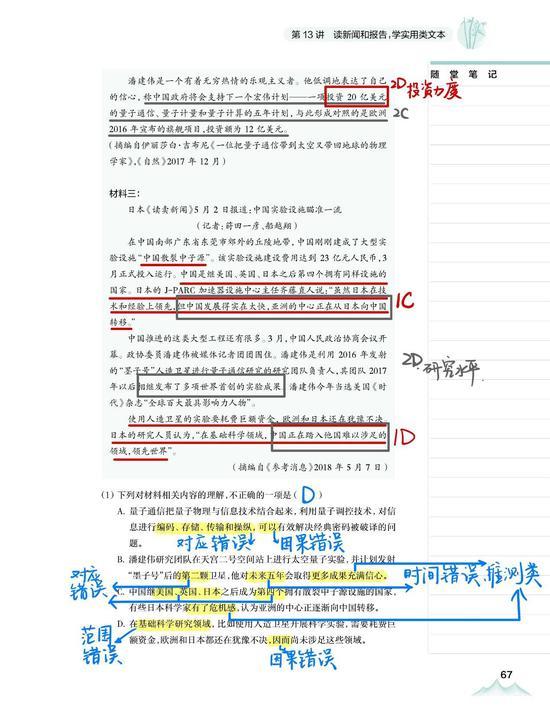 第 13 讲 读新闻和报告,学实用类文本
随堂笔记
潘建伟是一个有着无穷热情的乐观主义者。他低调地表达了自己
的信心,称中国政府将会支持下一个宏伟计划——一项投资 20 亿美元
的量子通信、量子计量和量子计算的五年计划,与此形成对照的是欧洲
2016 年宣布的旗舰项目,投资额为 12 亿美元。
2D投资力度
2C
(摘编自伊丽莎白·吉布尼《一位把量子通信带到太空又带回地球的物理
学家》,《自然》2017 年 12 月)
材料三:
日本《读卖新闻》5 月 2 日报道:中国实验设施瞄准一流
(记者:莳田一彦、船越翔)
在中国南部广东省东莞市郊外的丘陵地带,中国刚刚建成了大型实
验设施“中国散裂中子源”。该实验设施建设费用达到 23 亿元人民币,3
月正式投入运行。中国是继美国、英国、日本之后第四个拥有同样设施的
国家。日本的 J-PARC 加速器设施中心主任齐藤直人说:“虽然日本在技
术和经验上领先,但中国发展得实在太快,亚洲的中心正在从日本向中国
转移。”
1C
中国推进的这类大型工程还有很多。3 月,中国人民政治协商会议开
幕。政协委员潘建伟被媒体记者团团围住。潘建伟是利用 2016 年发射
的“墨子号”人造卫星进行量子通信研究的研究团队负责人,其团队 2017
年以后相继发布了多项世界首创的实验成果。潘建伟今年当选美国《时
代》杂志“全球百大最具影响力人物”。
2D.研究水平.
使用人造卫星的实验要耗费巨额资金,欧洲和日本还在犹豫不决,
日本的研究人员认为,“在基础科学领域,中国正在踏入他国难以涉足的
领域,领先世界”。
1D
(摘编自《参考消息》2018 年 5 月 7 日)
(1) 下列对材料相关内容的理解,不正确的一项是( D )
A. 量子通信把量子物理与信息技术结合起来,利用量子调控技术,对信
息进行编码、存储、传输和操纵,可以有效解决经典密码被破译的问
题。
对应错误
因果错误
B. 潘建伟研究团队在天宫二号空间站上进行太空量子实验,并计划发射
“墨子号”后的第二颗卫星,他对未来五年会取得更多成果充满信心。
对应错误
时间错误,推测类
C. 中国继美国、英国、日本之后成为第四个拥有散裂中子源设施的国家,
有些日本科学家有了危机感,认为亚洲的中心正逐渐向中国转移。
D. 在基础科学研究领域,比如使用人造卫星开展科学实验,需要耗费巨
额资金,欧洲和日本都还在犹豫不决,因而尚未涉足这些领域。
范围错误
因果错误
67